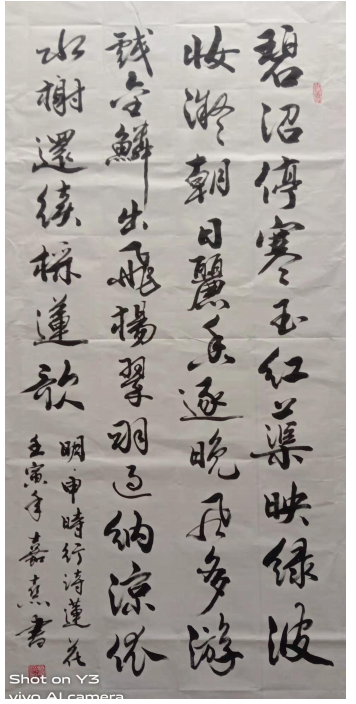 碧沼停寒玉红蕖映绿波
妆凝朝日麗香逐晚风多游
戲金鳞出飛楊翠羽過纳涼依
水榭還续採蓮歌
明·申時行诗蓮花
壬寅年嘉書
Shot on Y3
vivo AI camera